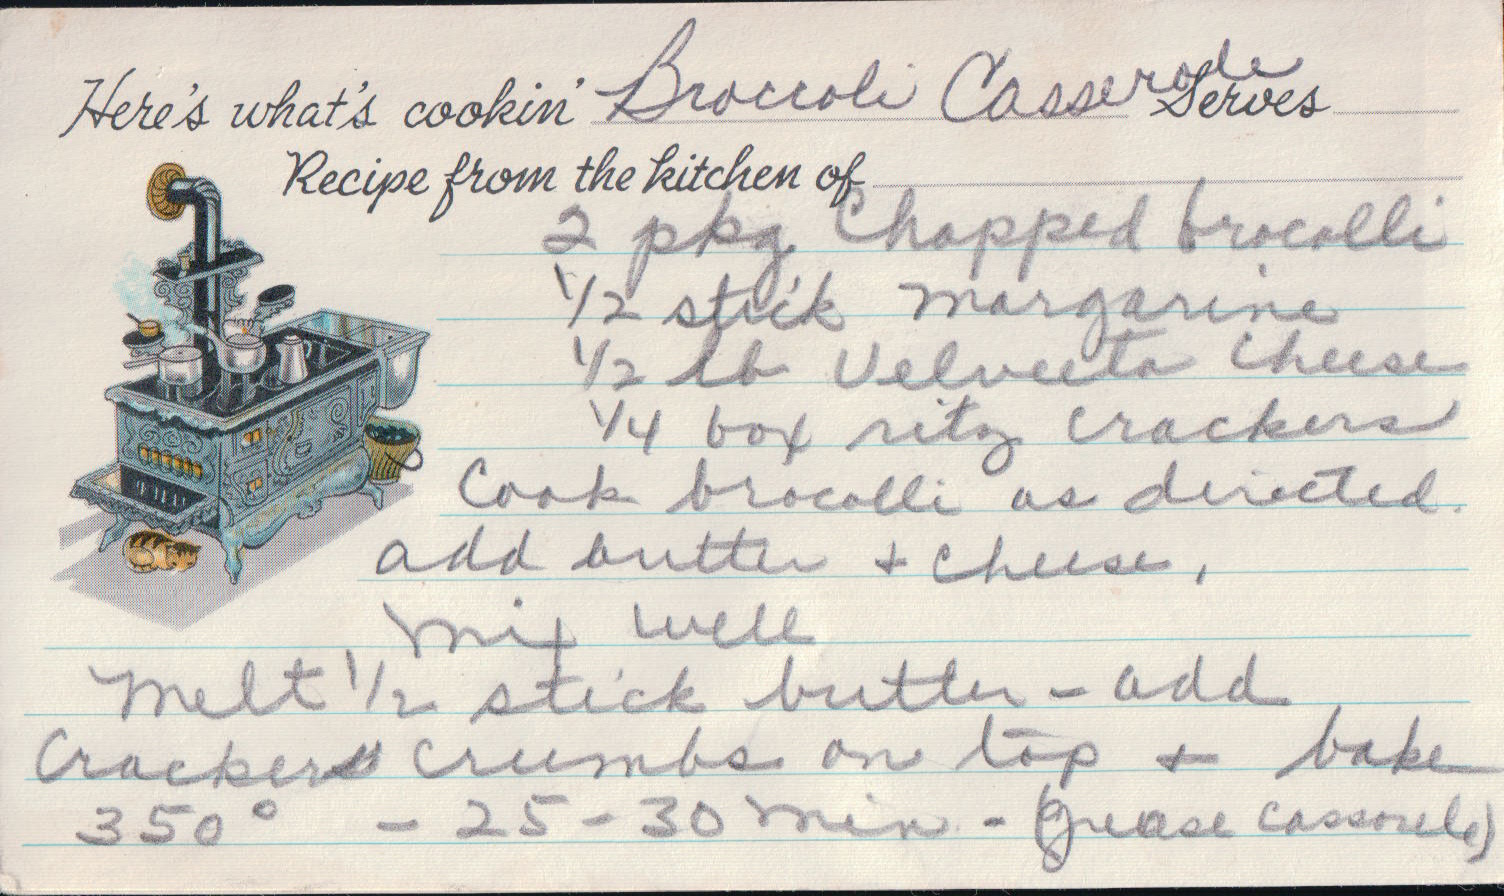 Here's what's cookin' Broccoli Casserole Serves
Recipe from the kitchen of
2 pkg Chopped brocolli
1/2 stick margarine
1/2 lb Velveeta Cheese
1/4 box ritz crackers
Cook brocolli as directed.
add butter + cheese,
Mix well
Melt 1/2 stick butter - add
Crackers crumbs on top + bake
350° - 25-30 min - (grease casserole)